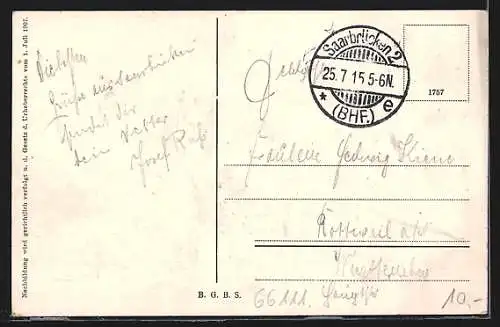 Nachbildung wird gerichtlich verfolgt n. d. Gesetz d. Urheberrechts vom 1. Juli 1907.
Die besten
Grüße
sendet dir
dein Vetter
Josef
Saarbrücken 2
25.7.15 5-6N.
* (BHF.) e
1757
Fräulein Hedwig Kiene
Rottweil a/N
Württemberg
B. G. B. S.
66111.
10,-